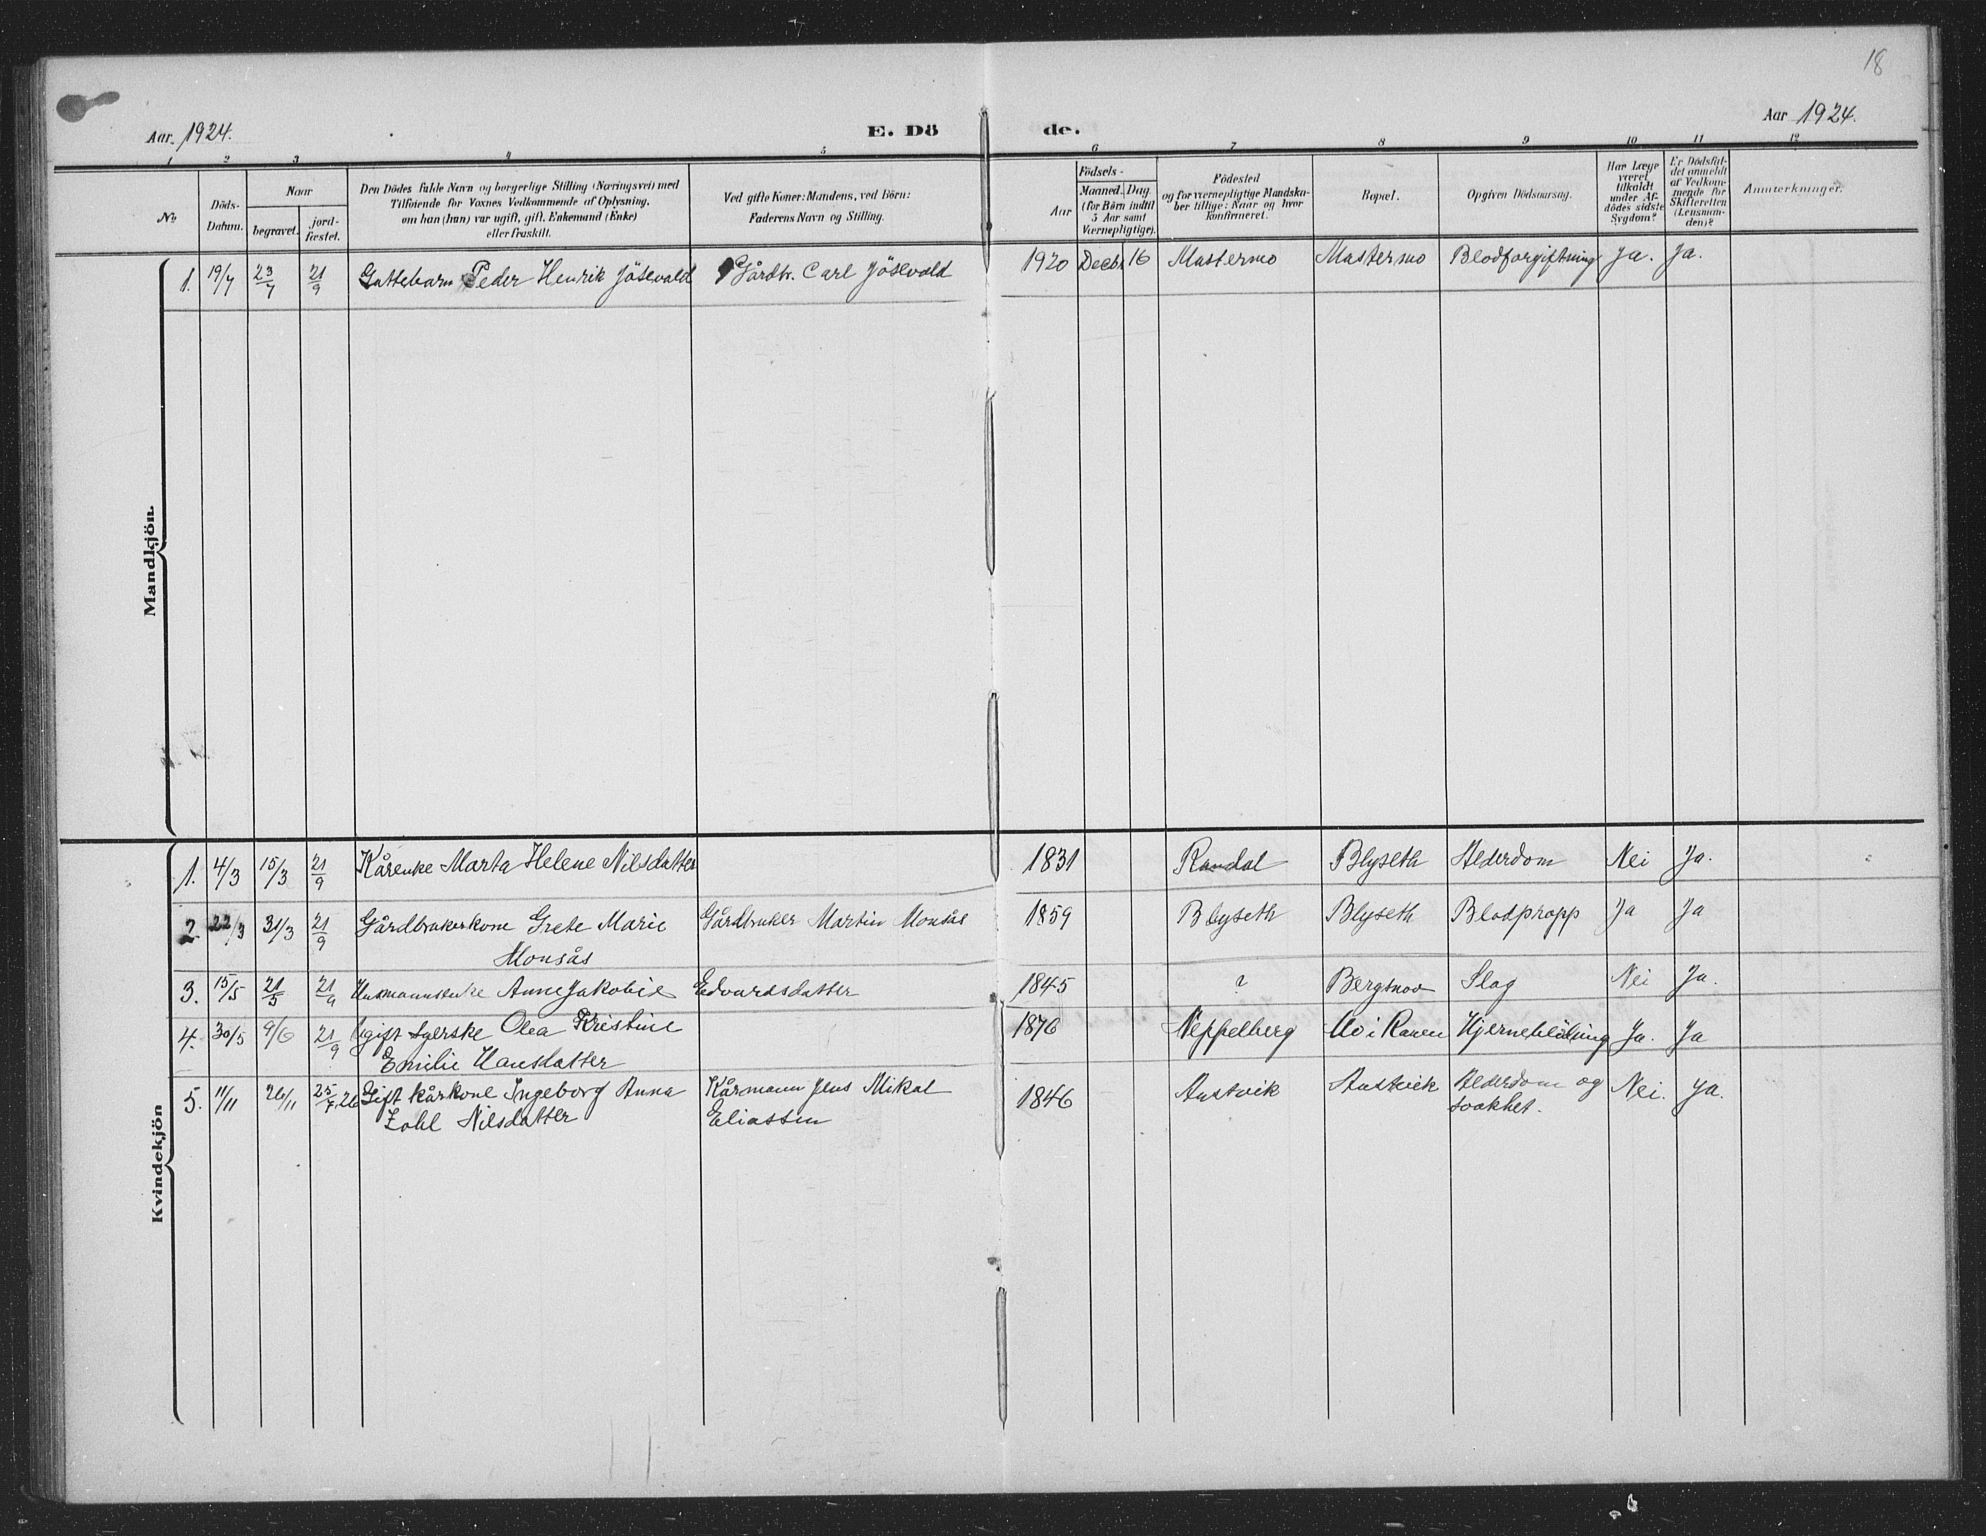 18
Aar 1924.
E. Dö
de.
Aar 1924.
1 2 3 4 5 6 7 8 9 10 11 12
No.
Döds-
Datum.
Naar
begravet.
jord-
fæstet.
Den Dödes fulde Navn og borgerlige Stilling (Næringsvei) med
Tilföiende for Voxnes Vedkommende af Oplysning,
om han (hun) var ugift, gift, Enkemand (Enke)
eller fraskilt.
Ved gifte Koner: Mandens, ved Börn:
Faderens Navn og Stilling.
Födsels-
Aar
Maaned. Dag.
(for Börn indtil
5 Aar samt
Værnepligtige).
Födested
og for værnepligtige Mandska-
ber tillige: Naar og hvor
konfirmeret.
Bopæl.
Opgiven Dödsaarsag.
Har Læge
været
tilkaldt
under Af-
dödes sidste
Sygdom?
Er Dödsfal-
det anmeldt
af Vedkom-
mende for
Skifteretten
(Lensman-
den)?
Anmærkninger.
Mandkjön.
1. 19/7 23/7 21/9 Guttebarn Peder Henrik Jösevold Gårdbr. Carl Jösevold 1920 Decbr 16 Mastermo Mastermo Blodforgiftning Ja. Ja.
Kvindekjön
1. 4/3 15/3 21/9 Kårenke Marta Helene Nilsdatter 1831 Randal Blyseth Alderdom Nei Ja.
2. 22/3 31/3 21/9 Gårdbrukerkone Grete Marie Gårdbruker Martin Monsås 1859 Blyseth Blyseth Blodpropp Ja Ja
Monsås
3. 15/5 21/5 21/9 Husmannsenke Anne Jakobie Edvardsdatter 1845 ? Bergsnov Slag Nei Ja.
4. 30/5 9/6 21/9 Ugift Syerske Olea Kristine 1876 Neppelberg Mo i Ranen Hjerneblödning Ja. Ja
Emilie Hansdatter
5. 11/11 26/11 25/7.26 Gift kårkone Ingeborg Anna Kårmann Jens Mikal 1846 Austvik Austvik Alderdom og Nei. Ja.
Zahl Nilsdatter Eliassen svakhet.